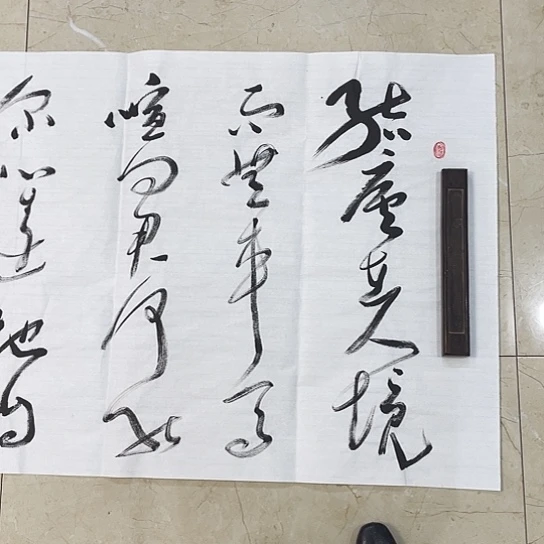 结庐在人境
而无车马
喧问君何能
尔心远地自